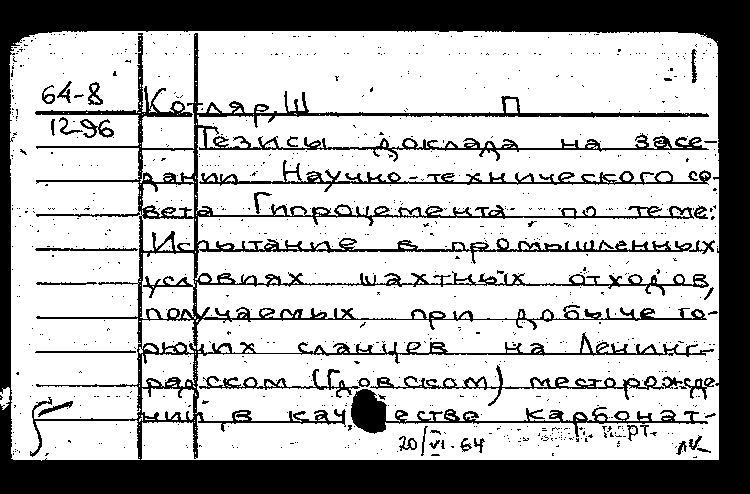 64-8 Котляр, Ш П
12-96 Тезисы доклада на засе-
дании Научно-технического со-
вета Гипроцемента по теме:
„Испытание в промышленных
условиях шахтных отходов,
получаемых при добыче го-
рючих сланцев на Ленинг-
радском (Гдовском) месторожде-
нии в качестве карбонат-
20/VI-64